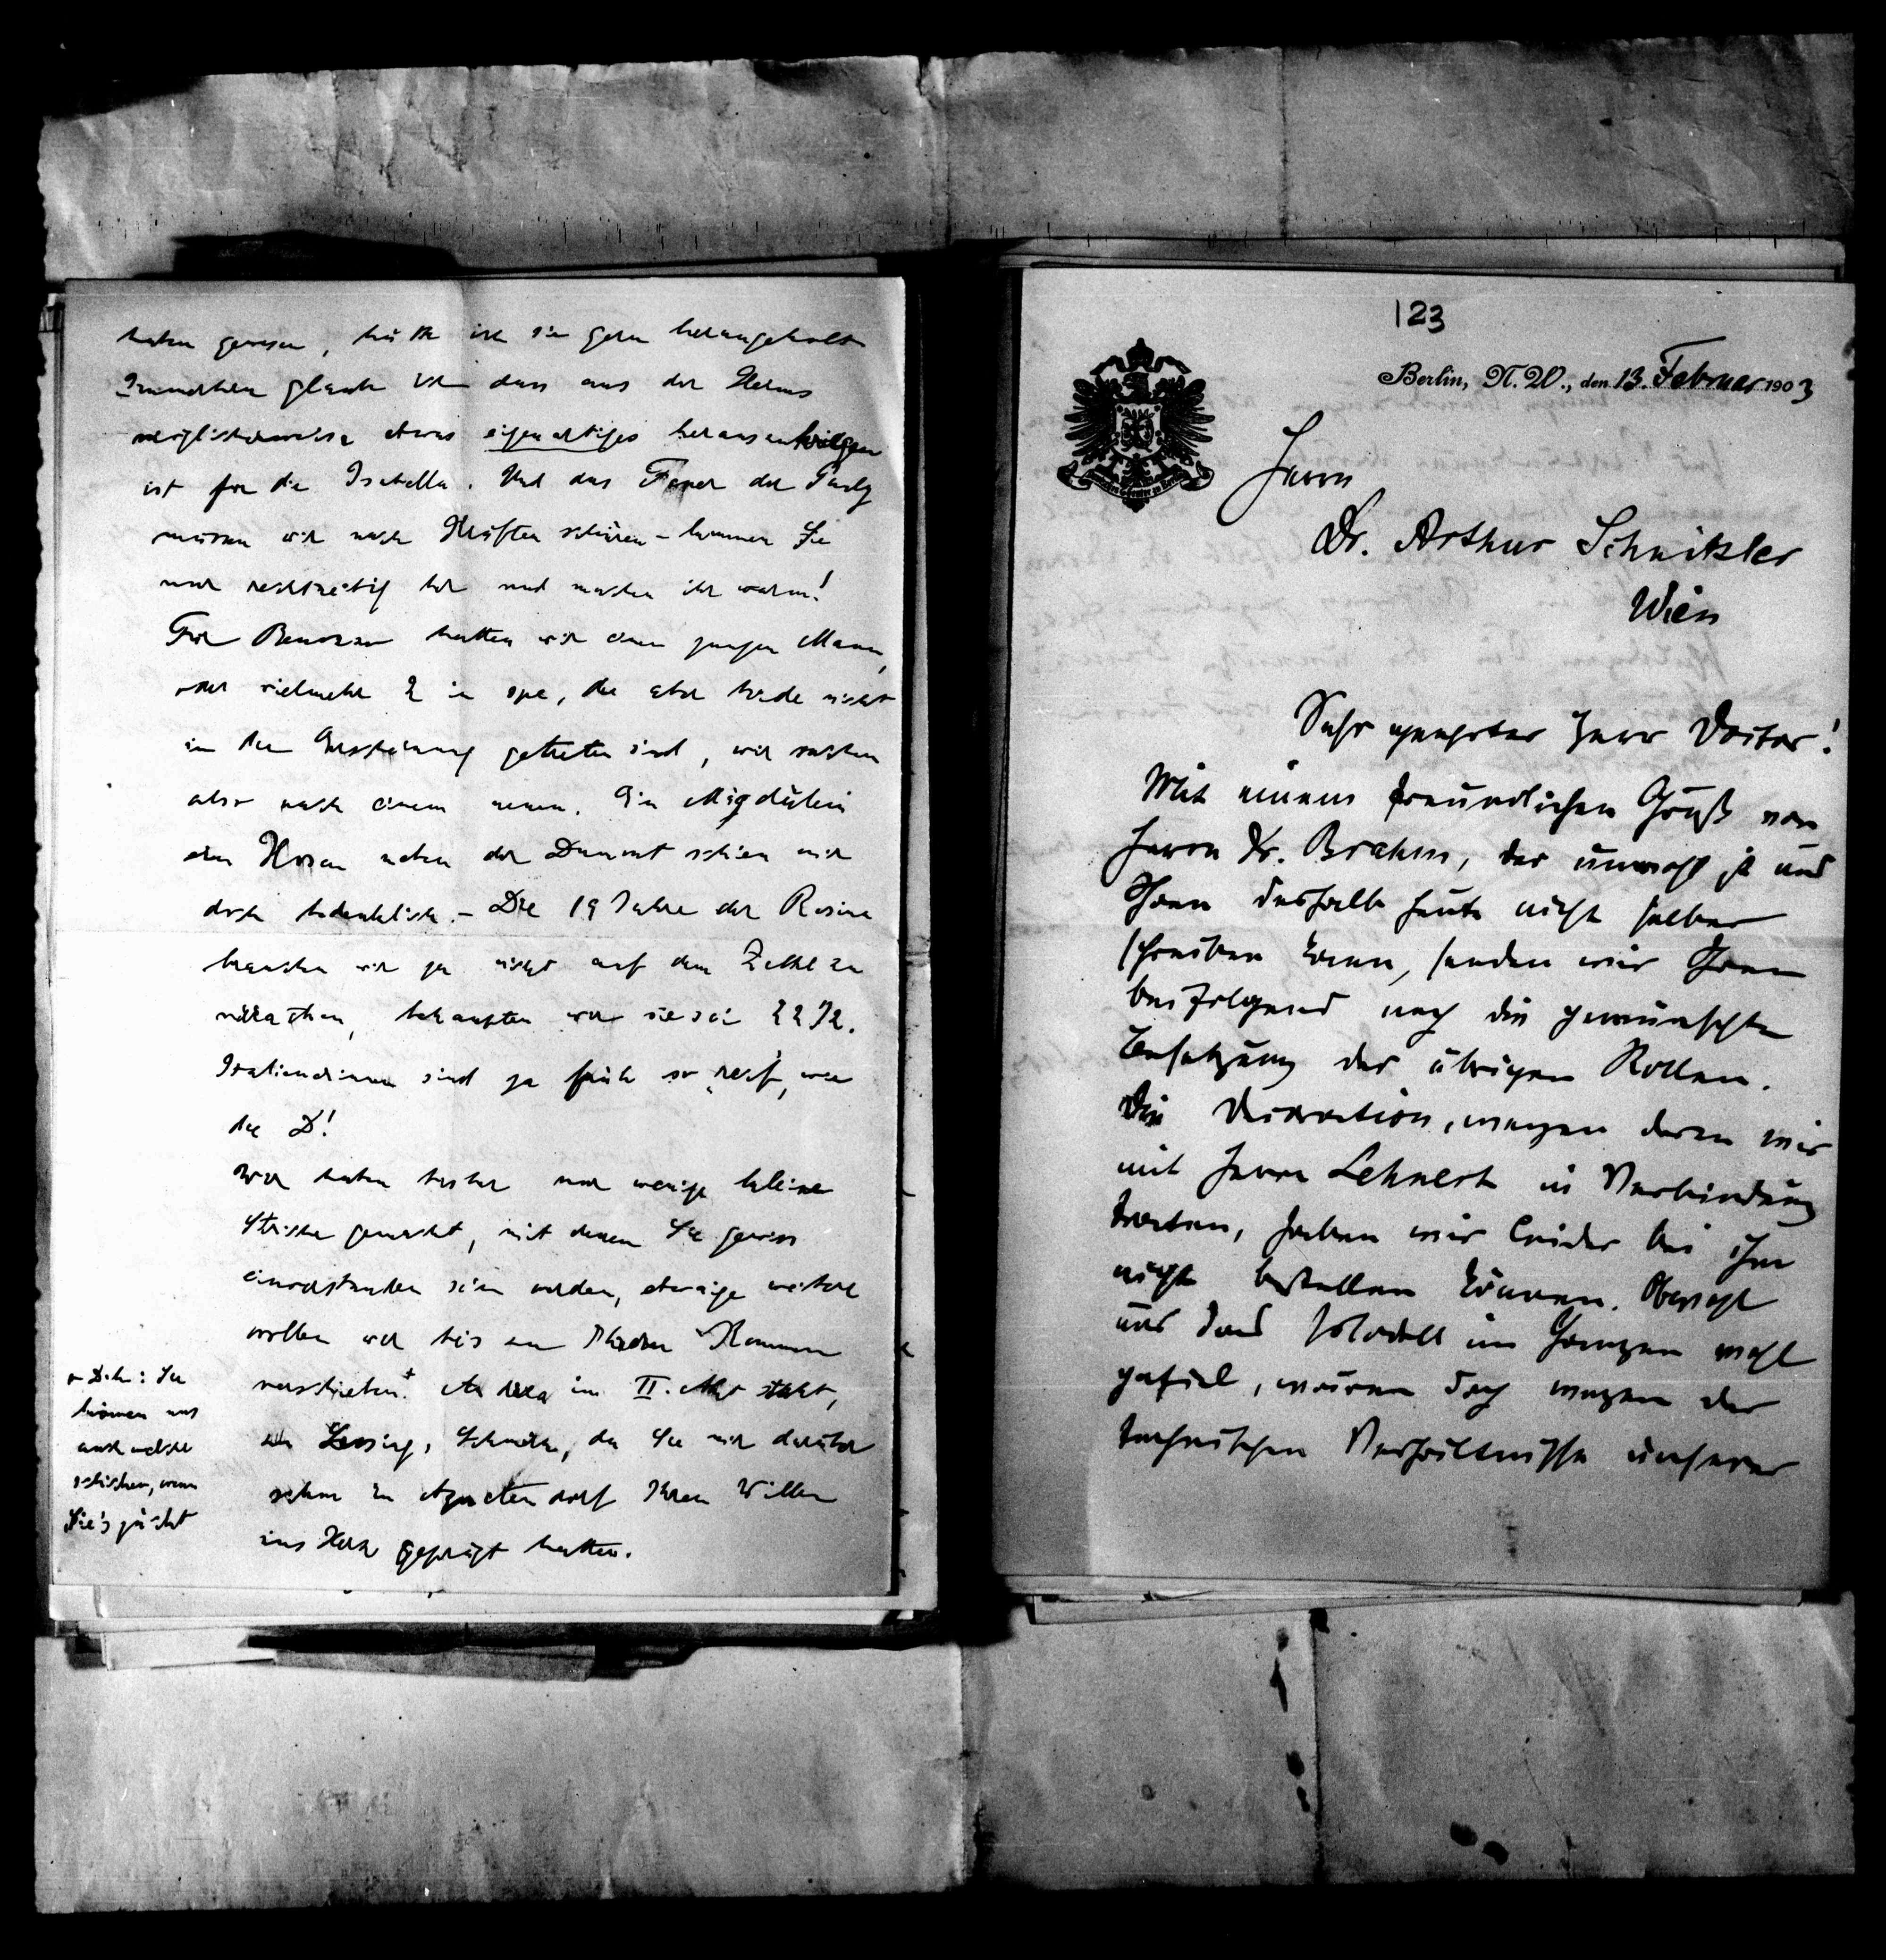 haben gewesen, hätte ich sie gern herangeholt
Immerhin glaube ich dass aus der Herms
möglicherweise etwas eigenartiges herauszukriegen
ist für die Isabella. Und das Feuer der Pauly
müssen wir nach Kräften schüren – kommen Sie
nur rechtzeitig her und machen ihr warm!
Für Benozzo hatten wir einen jungen Mann,
oder vielmehr 2 in spe, die aber beide nicht
in die Erscheinung getreten sind, wir suchen
also nach einem neuen. Ein Mägdulein
in Hosen neben der Dumont schien mir
doch bedenklich. – Die 19 Jahre der Rosina
brauchen wir ja nicht auf dem Zettel zu
verrathen, behaupten wir sie sei 22 J.
Italienerinnen sind ja früh so „reif“, wie
die D!
Wir haben bisher nur wenige kleine
Striche gemacht, mit denen Sie gewiss
einverstanden sein werden, etwaige weitere
wollen wir bis zu Ihrem Kommen
verschieben.+ Andrea im II. Akt steht,
da Sie mir darüber
schon in Agnetendorf Ihren Willen
ins Herz geprägt hatten.
+ D.h.: Sie
können uns
auch welche
schicken, wenn
Sie's juckt
123
Berlin, N.W., den 13. Februar 1903
Herrn
Dr. Arthur Schnitzler
Wien
Sehr geehrter Herr Doctor!
Mit einem freundlichen Gruß von
Herrn Dr. Brahm, der unwohl ist und
Ihnen deshalb heute nicht selber
schreiben kann, senden wir Ihnen
beifolgend noch die gewünschte
Besetzung der übrigen Rollen.
Die Decoration, wegen deren wir
mit Herrn Lehnert in Verbindung
traten, haben wir leider bei ihm
nicht bestellen können. Obwohl
uns das Modell im Ganzen wohl
gefiel, waren doch wegen der
technischen Verhältnisse unserer